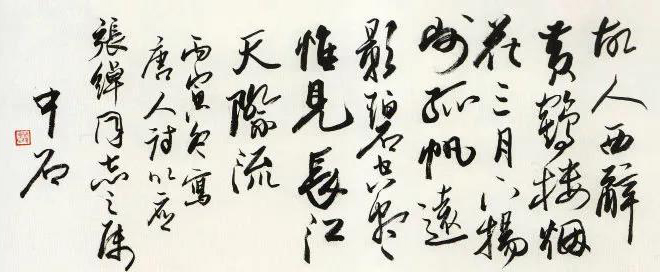 故人西辭
黄鶴楼烟
花三月下揚
州孤帆遠
影碧空尽
惟見長江
天際流
丙寅寫
唐人诗以应
張綽同志之属
中石